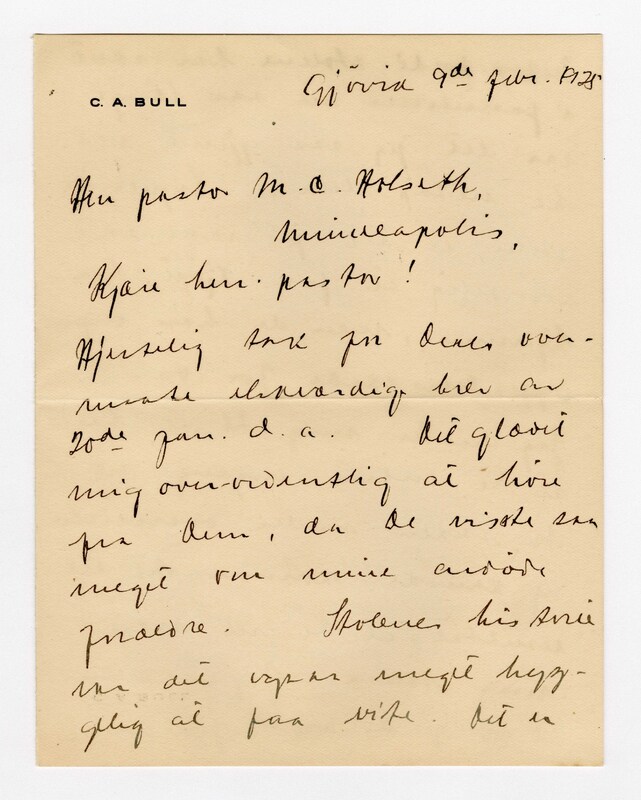 C. A. BULL
Gjövik 9de febr. 1925
Herr pastor M. C. Holseth,
Minneapolis,
Kjære herr. pastor!
Hjertelig tak for Deres over-
maate elskværdige brev av
20de jan. d. a. Det glædet
mig overordentlig at höre
fra Dem, da De visste saa
meget om mine avdöde
forældre. Stolenes historie
var det ogsaa meget hyg-
gelig at faa vite. Det er